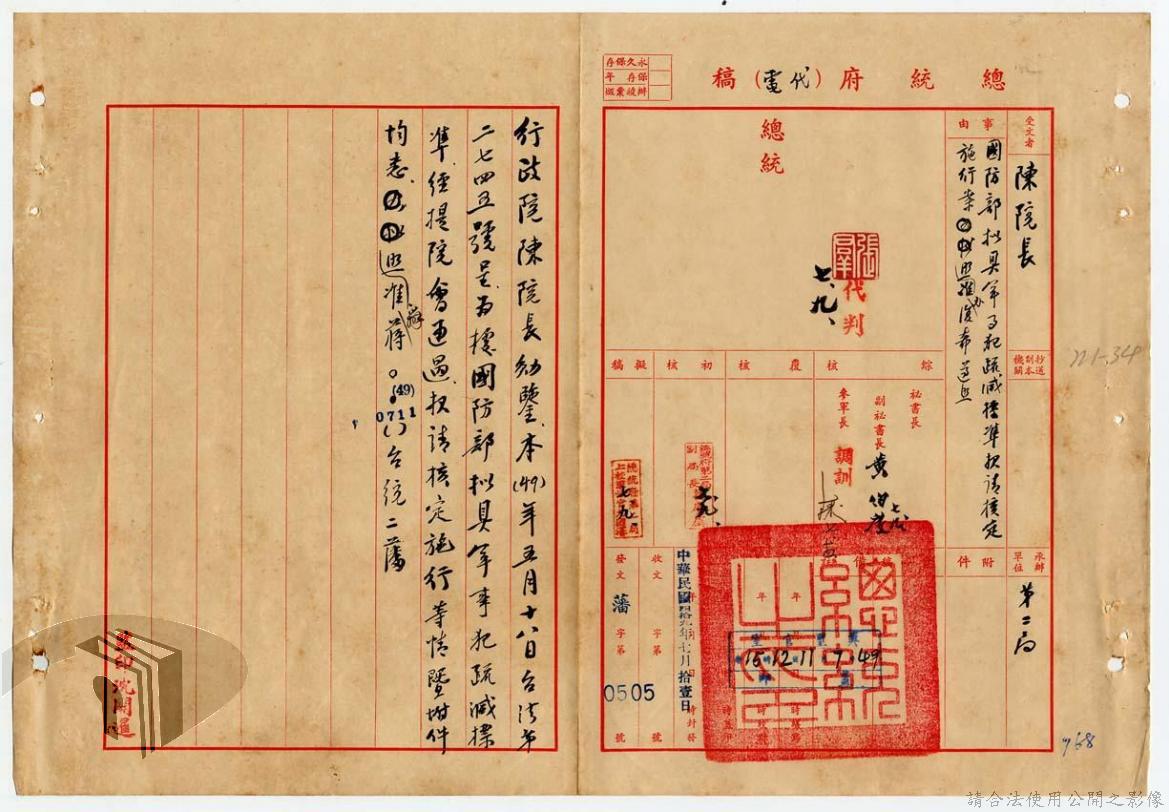 總統府(代電)稿
永久保存
保存年
受文者
陳院長
事由
國防部擬具軍事犯疏減標準報請核定
施行案
抄送副本機關
總統
張羣
代判
七、九、
綜核
覆核
初核
擬稿
祕書長
副祕書長
黃伯度
參軍長
調訓
承辦單位
第二局
附件
中華民國四拾九年七月拾壹日
收文
字第
號
發文
藩
字第
0505
號
49
7
11
12
15
行政院陳院長勛鑒本(49)年五月十八日台法字
二七四五號呈為據國防部擬具軍事犯疏減標
準經提院會通過報請核定施行等情暨附件
均悉
照准蔣
(49)
0711
台統二藩
監印沈開運
n1-34
768
請合法使用公開之影像